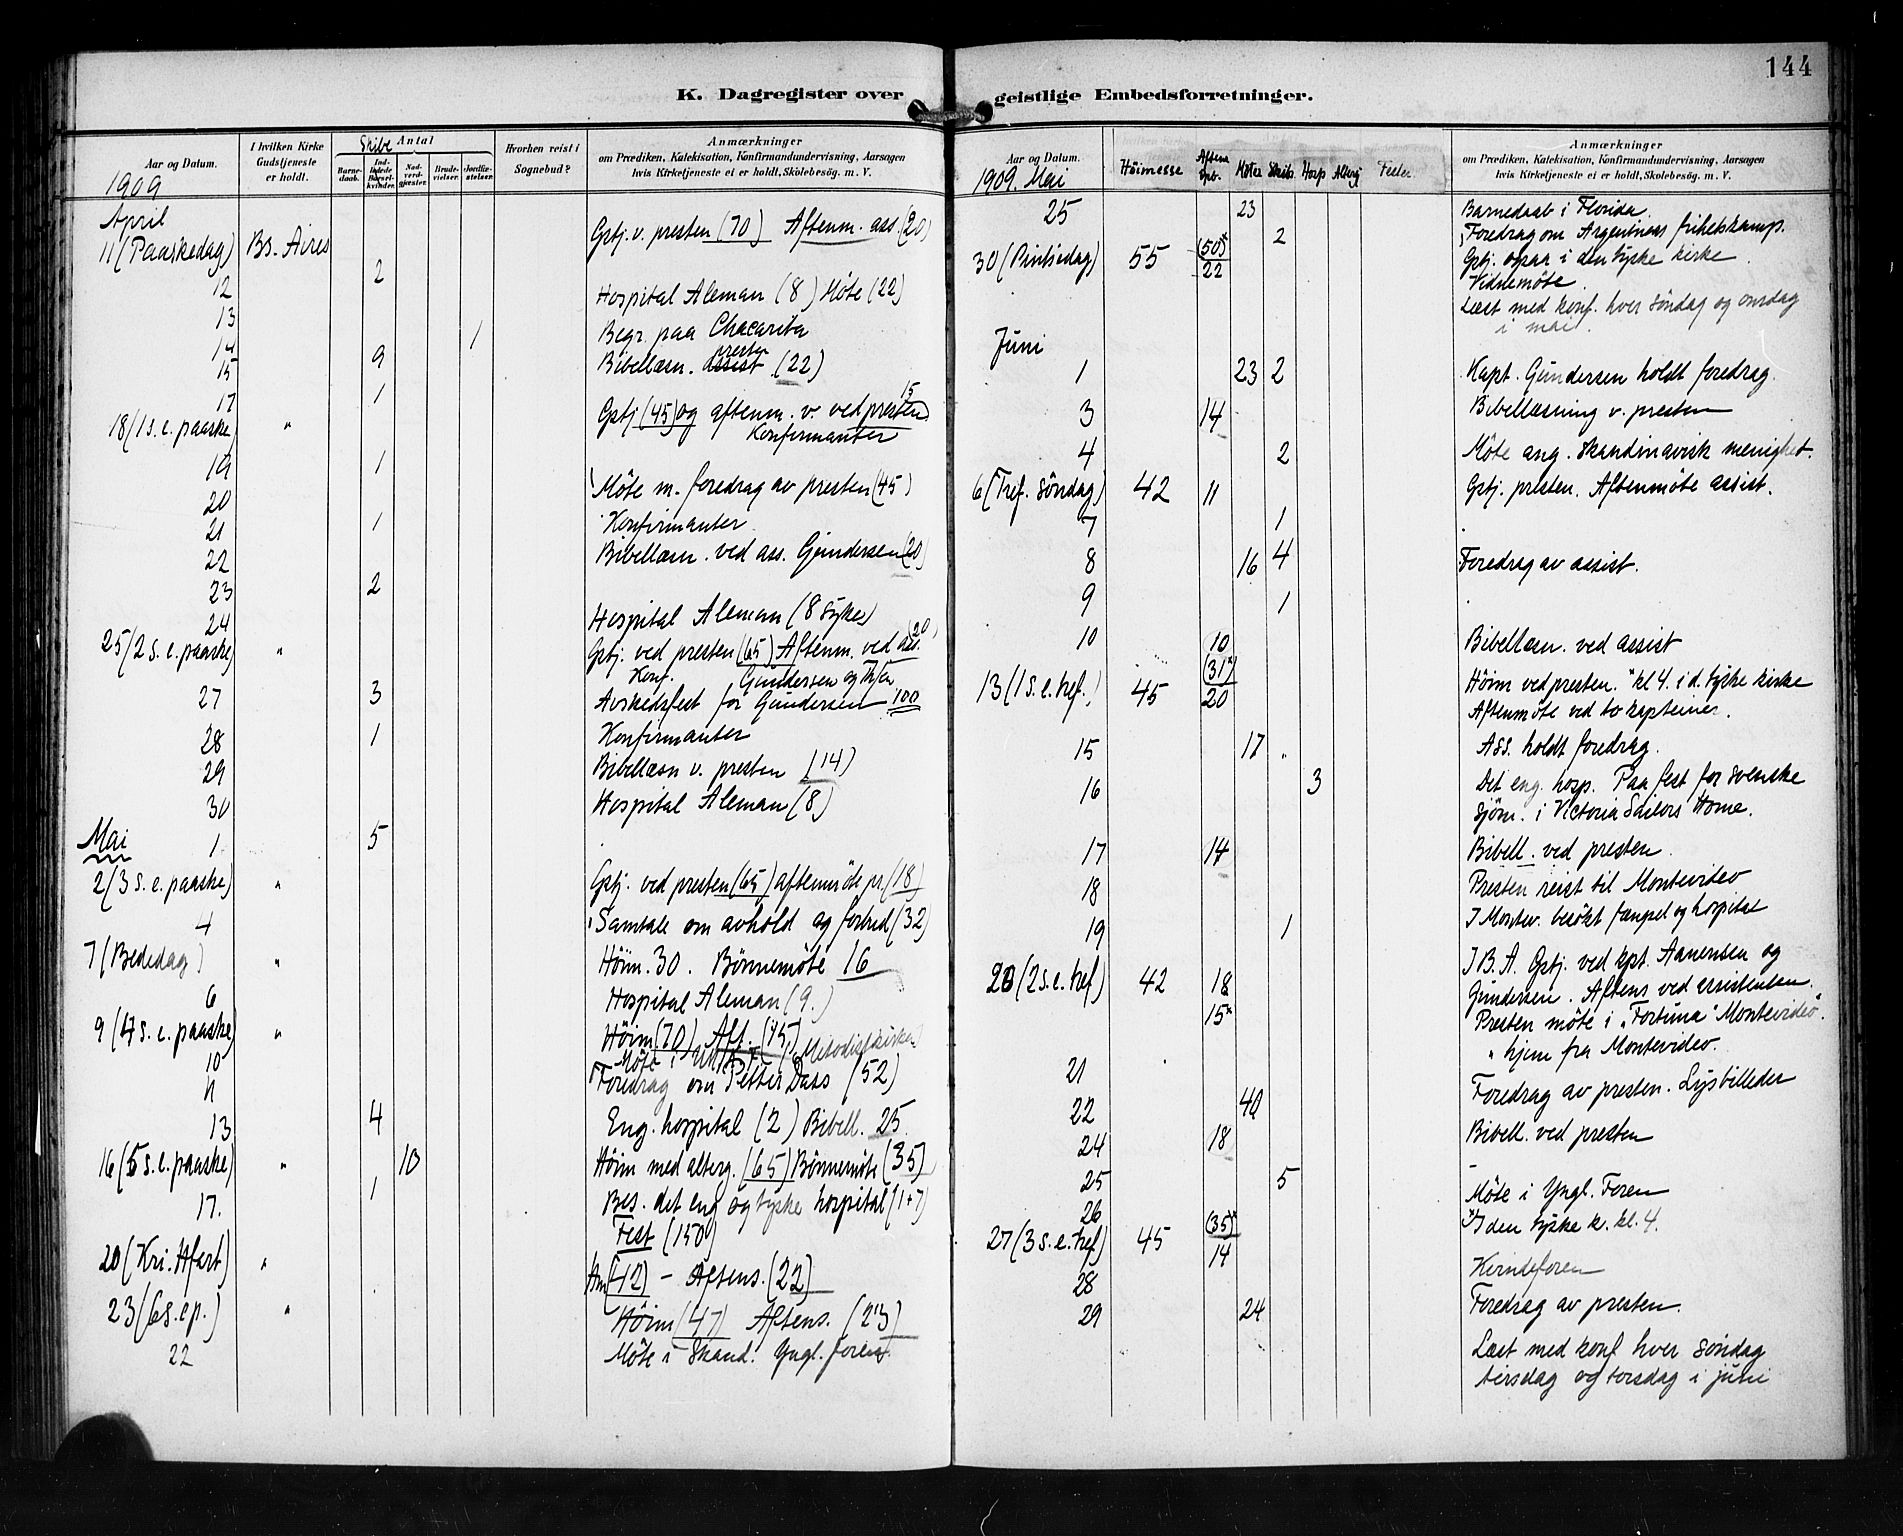 144
K. Dagregister over geistlige Embedsforretninger.
Aar og Datum.
1909
I hvilken Kirke Gudstjeneste er holdt.
Skibe
Antal
Barnedaab.
Indledede Barselkvinder.
Nadverdgjæster.
Brudevielser.
Jordfæstelser.
Hvorhen reist i Sognebud?
Anmærkninger
om Prædiken, Katekisation, Konfirmandundervisning, Aarsagen
hvis Kirketjeneste ei er holdt, Skolebesøg. m. V.
April
11 (Paaskedag) Bs. Aires Gstj. v. presten (70) Aftenm. ass. (20)
12 2
Hospital Aleman (8) Møte (22)
13
Begr. paa Chacarita
14 1
15 9 Bibellæsn. assist presten (22)
17 1
18 (1 s. e. paaske) " Gstj (45) og aftenm. v. ved presten 15
Konfirmanter
19 1
Møte m. foredrag av presten (45)
20
21 1 Konfirmanter
22 Bibellæsn. ved ass. Gundersen (20)
23 2
24 Hospital Aleman (8 syke)
25 (2 s. e. paaske) " Gstj. ved presten (65) Aftenm. ved ass. (20)
Konf. Gundersen og
27 3 Avskedsfest for Gundersen 100
28 1 Konfirmanter
29 Bibellæsn v. presten (14)
30 Hospital Aleman (8)
Mai
1 5
2 (3 s. e. paaske) " Gstj. ved presten (65) aftenmøte pr. (18)
4 Samtale om avhold og forbud (32)
7 (Bededag) " Höim. 30. Bönnemöte 16
6 Hospital Aleman (9.)
9 (4 s. e. paaske) " Höim (70) Aft. (45)
10 Møte i (Metodistkirken)
11 Foredrag om Petter Dass (52)
13 4 Eng. hospital (2) Bibell. 25
16 (5 s. e. paaske) " 10 Höim med alterg. (65) Bönnemöte (35)
17. 1 Bes. det eng og tyske hospital (1+7)
Fest (150)
20 (Kri. Hfart) " (42) – Aftens. (22)
23 (6 s. e p.) " Höim (47) Aftens. (23)
22 Møte i Skand. Yngl. foren.
Aar og Datum.
1909. Mai
Höimesse
Aftens
Møter
Skib.
Hosp
Alterg
Fester
Anmærkninger
om Prædiken, Katekisation, Konfirmandundervisning, Aarsagen
hvis Kirketjeneste ei er holdt, Skolebesøg. m. V.
25 23 Barnedaab i Florida.
2 Foredrag om Argentinas frihetskamp.
30 (Pintsedag) 55 (50)x Gstj. ogsaa i den tyske kirke
22 Vidnemöte.
Læst med konf. hver söndag og onsdag
i mai.
Juni
1 23 2 Kapt. Gundersen holdt foredrag.
3 14 Bibellæsning v. presten
4 2 Møte ang. skandinavisk menighet.
6 (Tref. Söndag) 42 11 Gstj. presten. Aftenmøte assist.
7 1
8 16 4 Foredrag av assist.
9 1
10 10 Bibellæsn. ved assist
13 (1 s. e. tref.) 45 (31x) Höim ved presten. x kl 4. i d. tyske kirke
20 Aftenmöte ved to kapteiner.
15 17 Ass. holdt foredrag.
16 3 Det eng. hosp. Paa fest for svenske
sjöm. i Victoria Sailors Home.
17 14 Bibell. ved presten
18 Presten reist til Montevideo
19 1 I Montev. besökt fængsel og hospital
20 (2 s. e. tref) 42 18 I B. A. Gstj. ved kpt. Aanensen og
Gundersen. Aftens ved assistenten.
15x Presten möte i „Fortuna" Montevideo.
" hjem fra Montevideo.
21
22 40 Foredrag av presten. Lysbilleder
24 18 Bibell. ved presten
25 5
26 Møte i Yngl. Foren
27 (3 s. e. tref) 45 (35)x x I den tyske k. kl. 4.
14
28 Kvindeforen
29 24 Foredrag av presten.
Læst med konf hver söndag
tirsdag og torsdag i juni